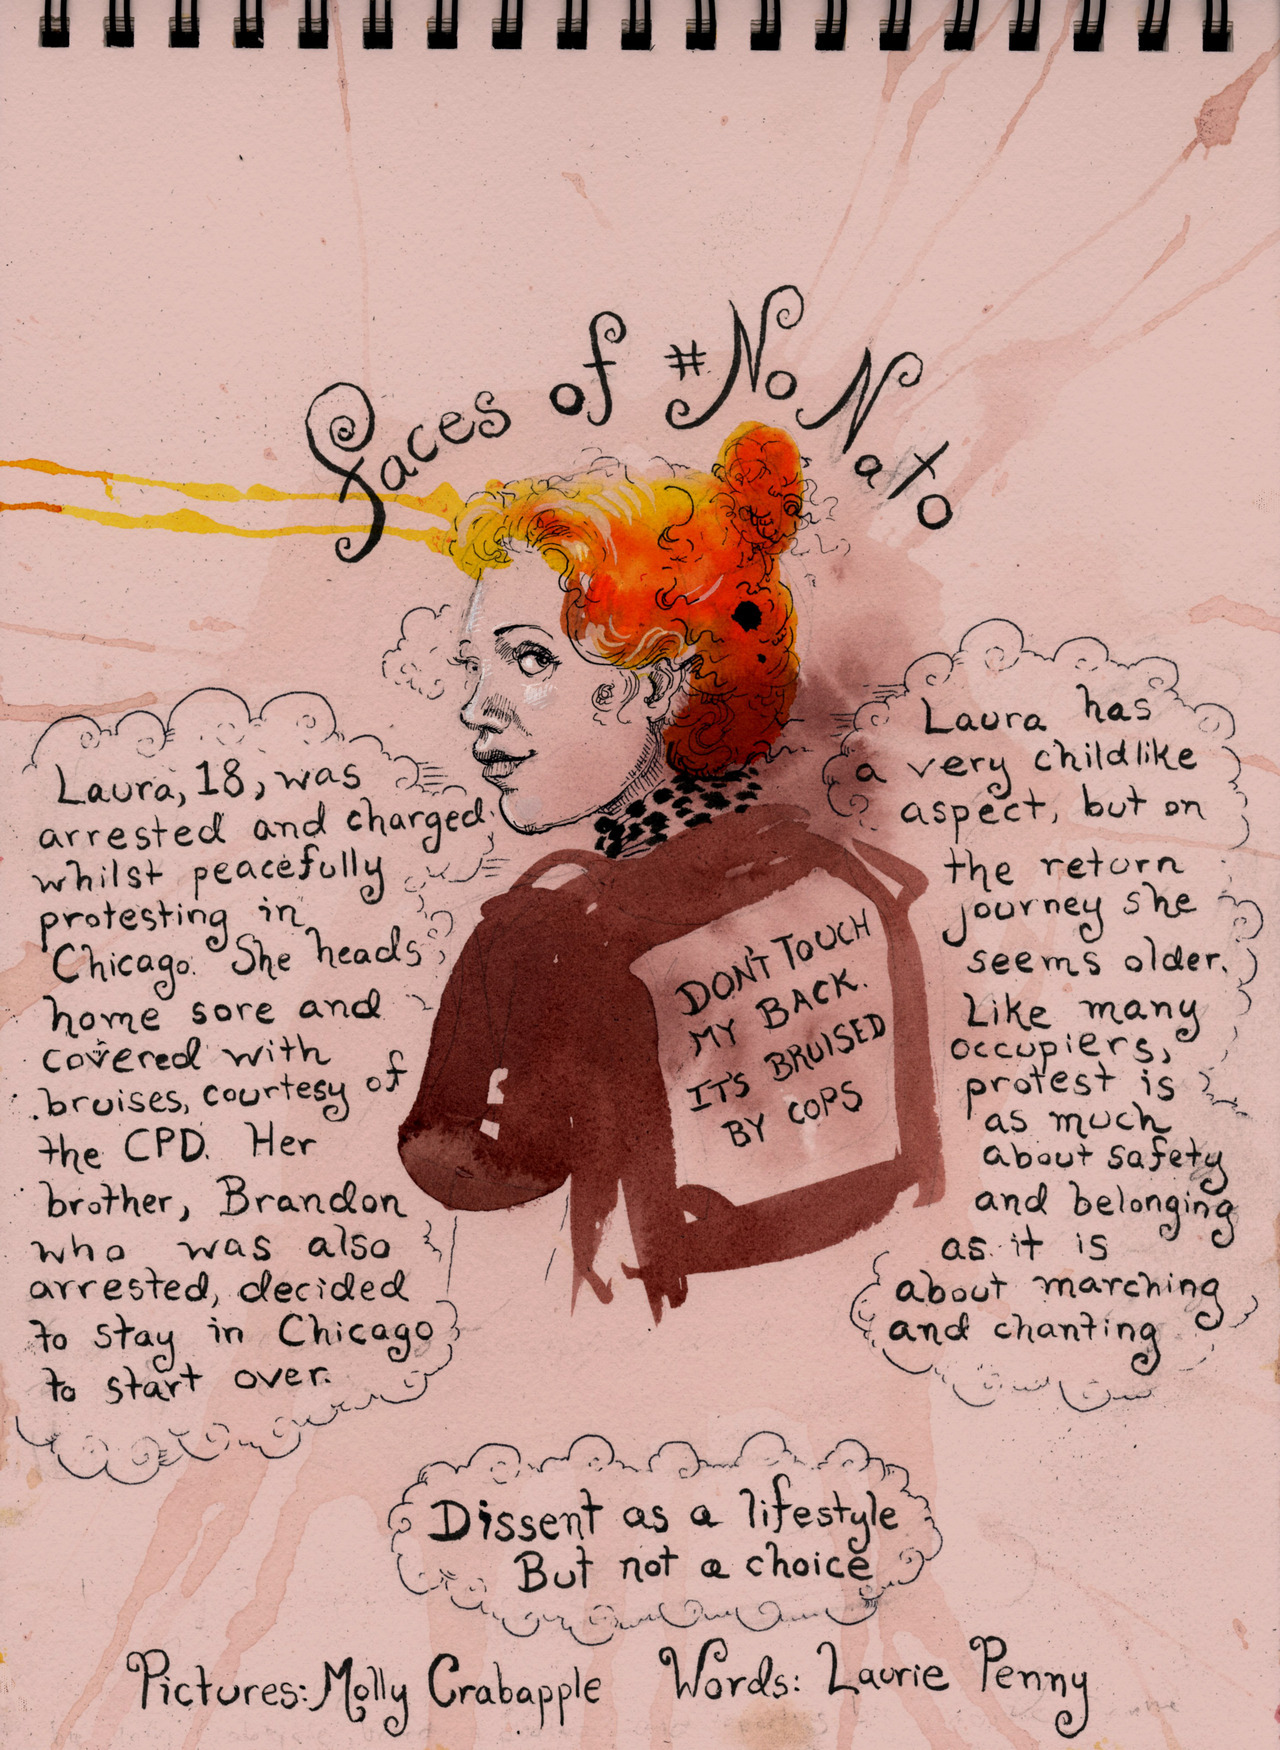 Faces of #No Nato
Laura, 18, was
arrested and charged
whilst peacefully
protesting in
Chicago. She heads
home sore and
covered with
bruises, courtesy of
the CPD. Her
brother, Brandon
who was also
arrested, decided
to stay in Chicago
to start over.
DON'T TOUCH
MY BACK.
IT'S BRUISED
BY COPS
Laura has
a very childlike
aspect, but on
the return
journey she
seems older.
Like many
occupiers,
protest is
as much
about safety
and belonging
as it is
about marching
and chanting
Dissent as a lifestyle
But not a choice
Pictures: Molly Crabapple Words: Laurie Penny